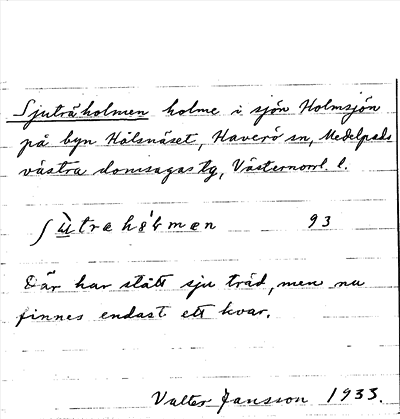 Sjuträholmen holme i sjön Holmsjön
på byn Hålsnäset, Haverö sn, Medelpads
västra domsagas tg, Västernorrl. l.
ʃù̲træhɵ́lmæn 93
Där har stått sju träd, men nu
finnes endast ett kvar.
Valter Jansson 1933.